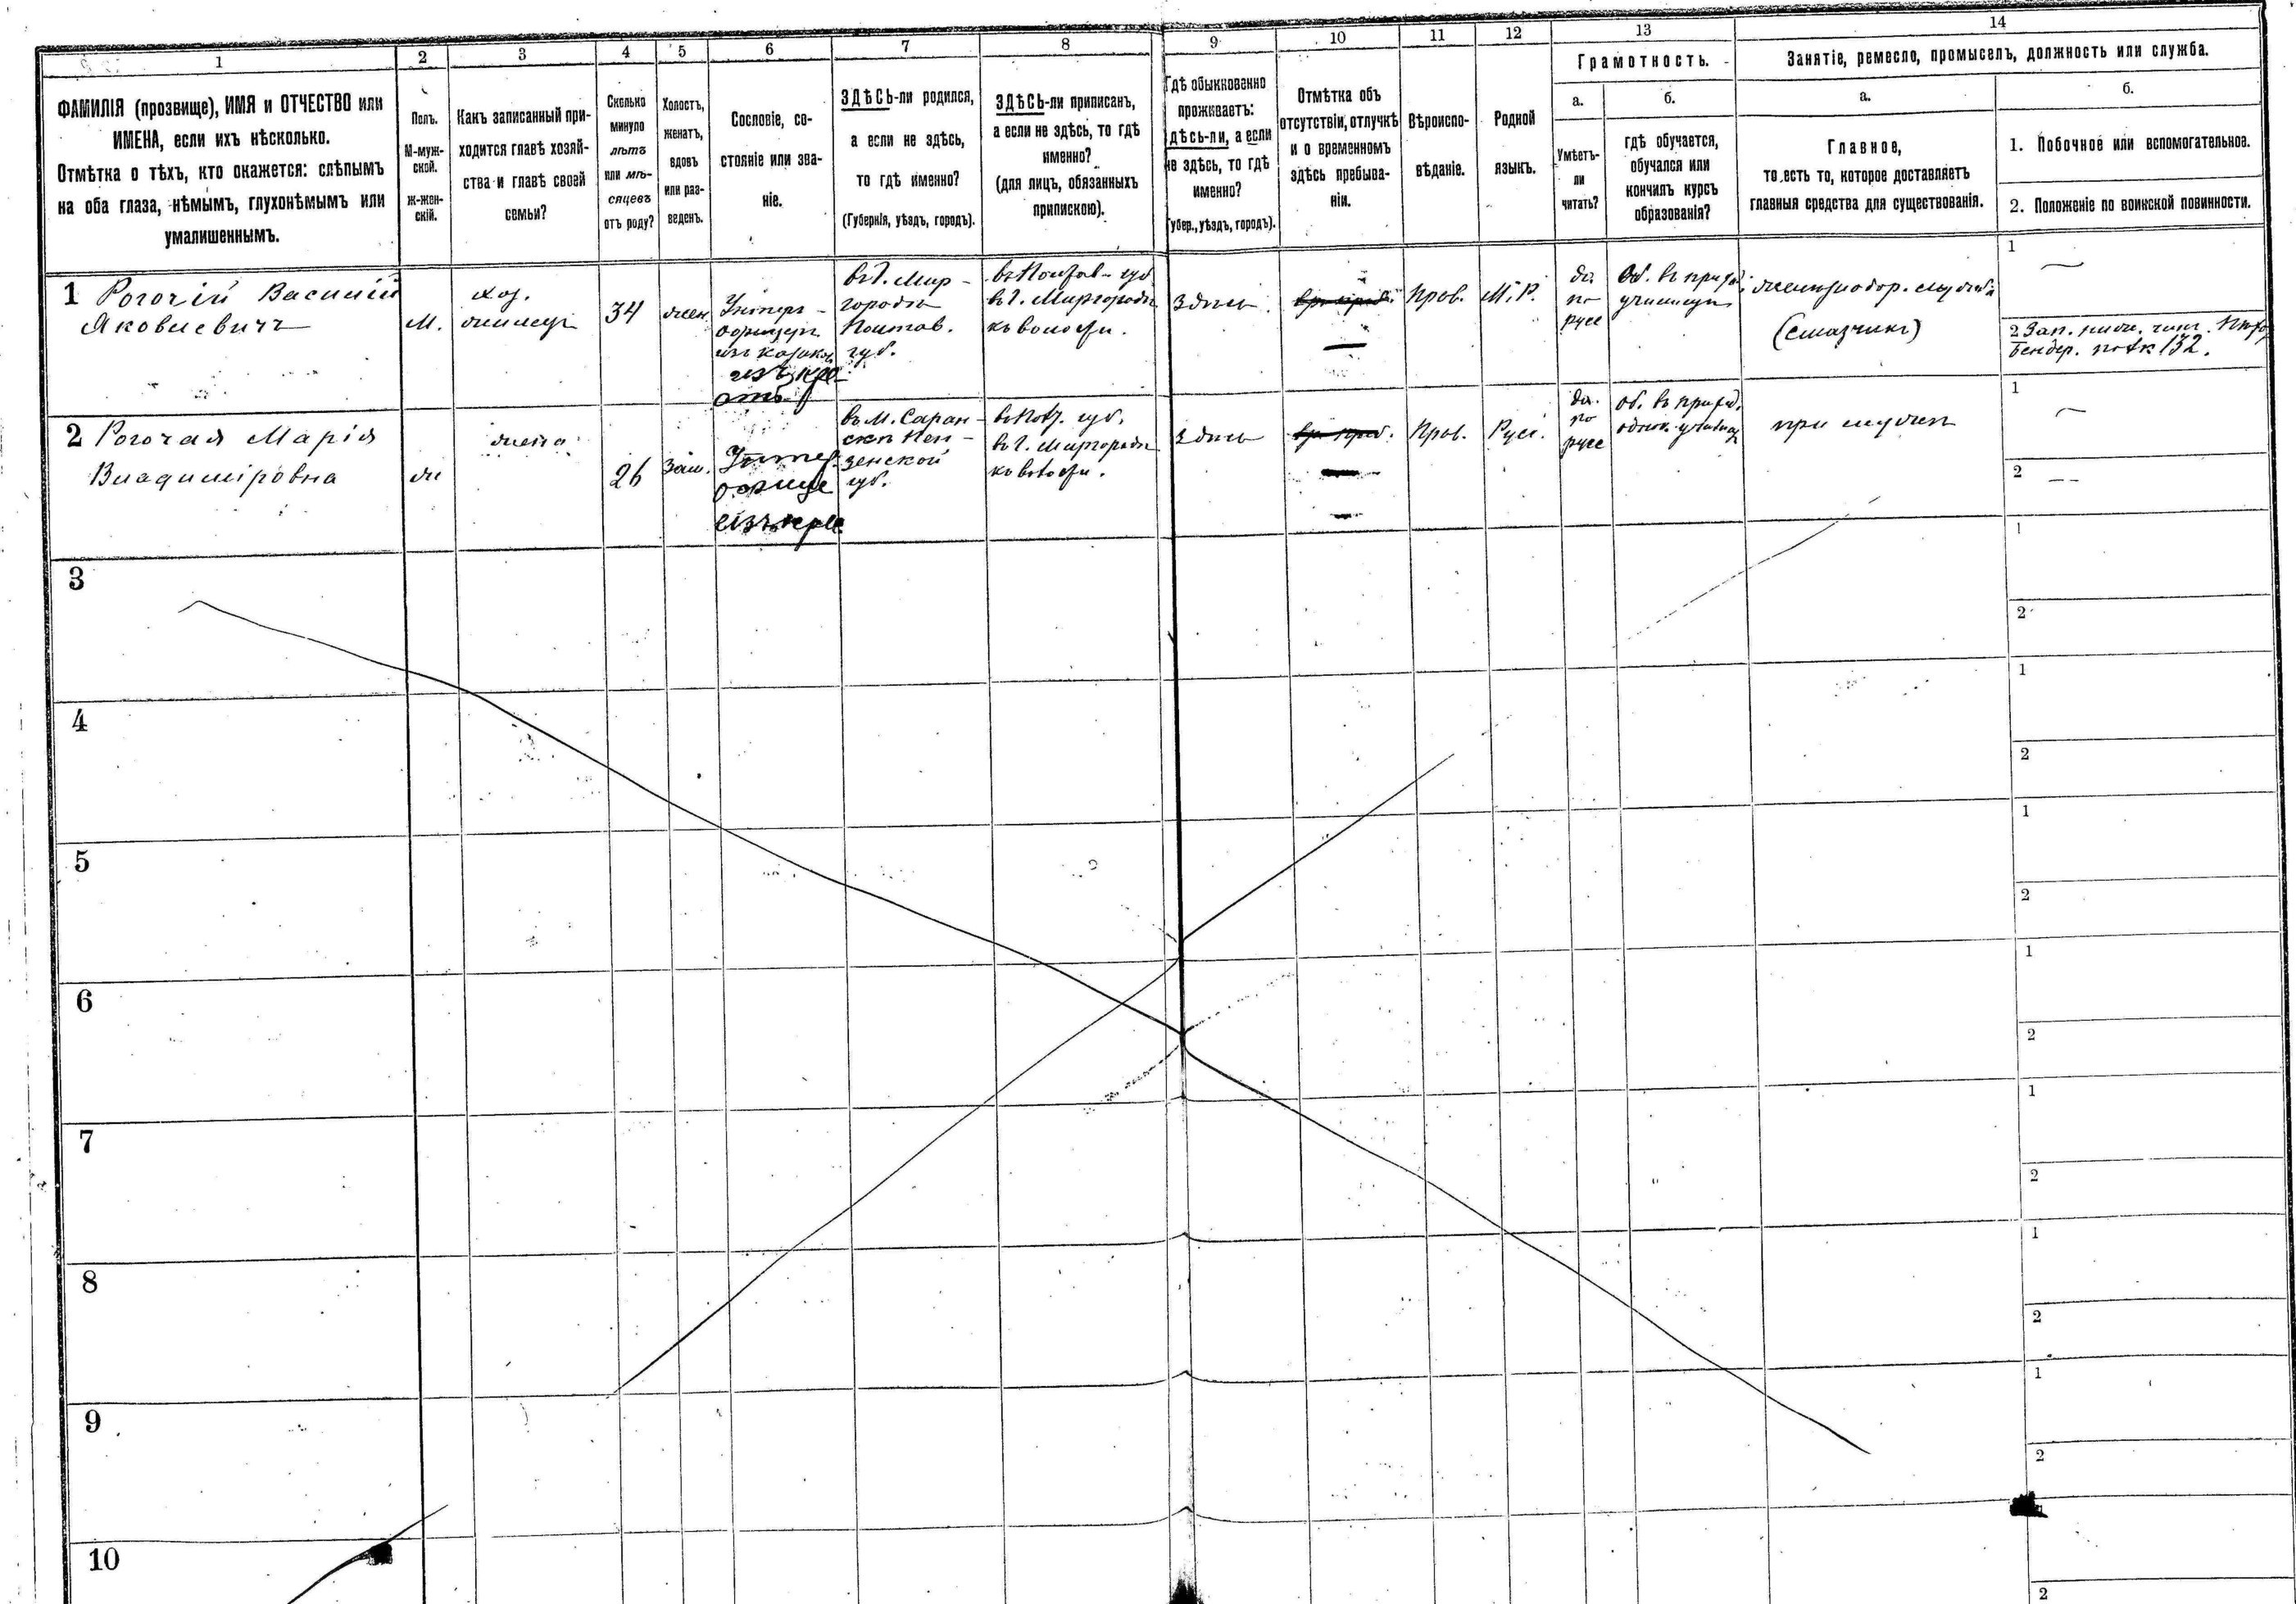 1
2
3
4
5
6
7
8
9
10
11
12
13
14
ФАМИЛІЯ (прозвище), ИМЯ и ОТЧЕСТВО или
ИМЕНА, если ихъ нѣсколько.
Отмѣтка о тѣхъ, кто окажется: слѣпымъ
на оба глаза, нѣмымъ, глухонѣмымъ или
умалишеннымъ.
Полъ.
М-муж-
ской.
ж-жен-
скій.
Какъ записанный при-
ходится главѣ хозяй-
ства и главѣ своей
семьи?
Сколько
минуло
лѣтъ
или мѣ-
сяцевъ
отъ роду?
Холостъ,
женатъ,
вдовъ
или раз-
веденъ.
Сословіе, со-
стояніе или зва-
ніе.
ЗДѢСЬ-ли родился,
а если не здѣсь,
то гдѣ именно?
(Губернія, уѣздъ, городъ).
ЗДѢСЬ-ли приписанъ,
а если не здѣсь, то гдѣ
именно?
(для лицъ, обязанныхъ
припискою).
Гдѣ обыкновенно
проживаетъ:
здѣсь-ли, а если
не здѣсь, то гдѣ
именно?
(Губер., уѣздъ, городъ).
Отмѣтка объ
отсутствіи, отлучкѣ
и о временномъ
здѣсь пребыва-
ніи.
Вѣроиспо-
вѣданіе.
Родной
языкъ.
Грамотность.
а.
Умѣетъ-
ли
читать?
б.
гдѣ обучается,
обучался или
кончилъ курсъ
образованія?
Занятіе, ремесло, промыселъ, должность или служба.
а.
Главное,
то есть то, которое доставляетъ
главныя средства для существованія.
б.
1. Побочное или вспомогательное.
2. Положеніе по воинской повинности.
1 Рогочій Василій
Яковлевичъ
М.
хоз.
34
жен.
Унтеръ-
офицеръ
изъ козак.
въ г. Мир-
городѣ
Полтав.
губ.
въ Полтав. губ.
въ г. Миргородѣ
Здѣсь
Прав.
М. Р.
да.
по
русс
Об. въ приход.
училищѣ
(смазчикъ)
1
2 Зап. нижн. чинъ
Бендер. 132.
2 Рогочая Марія
Владиміровна
ж
жена
26
Зам.
въ М. Саран-
скѣ Пен-
зенской
губ.
въ Полт. губ.
въ г. Миргородѣ
Здѣсь
Прав.
Русс.
да.
по
русс
Об. въ приход.
училищ
при мужѣ
1
2
3
1
2
4
1
2
5
1
2
6
1
2
7
1
2
8
1
2
9
1
2
10
2